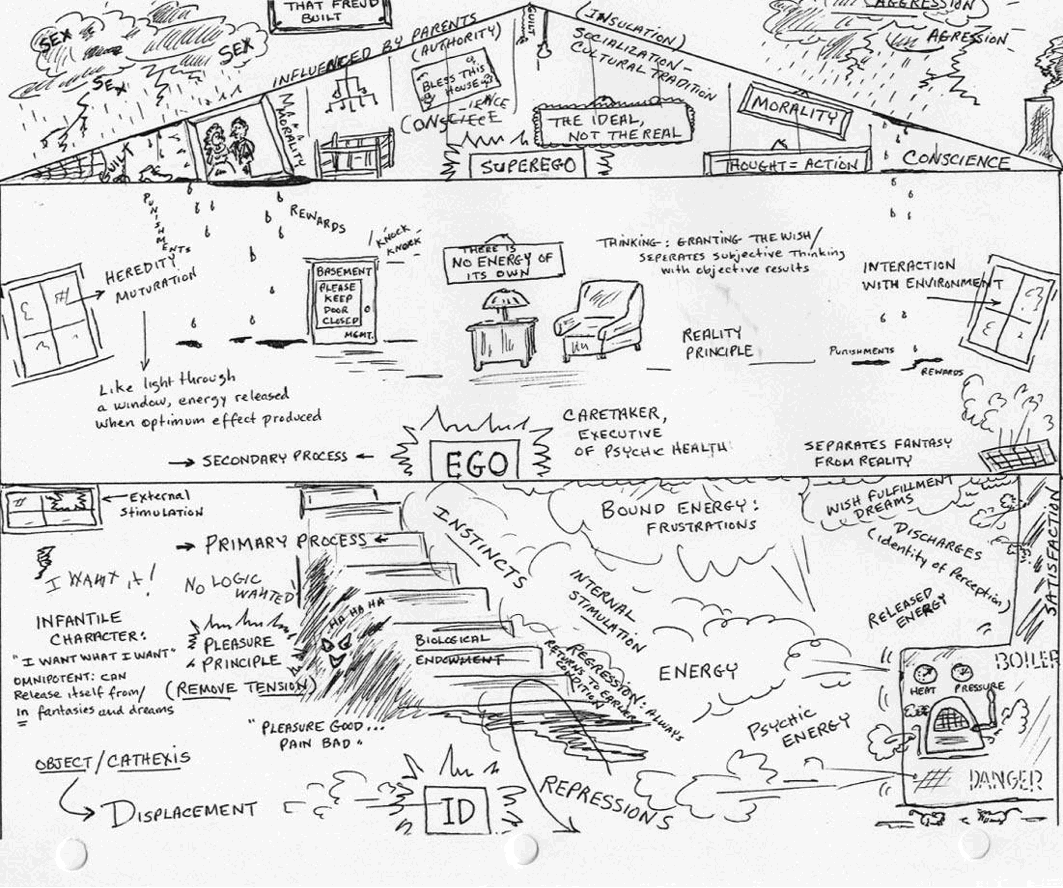 THAT FREUD
BUILT
SEX
SEX
SEX
INFLUENCED BY PARENTS
(AUTHORITY)
BLESS THIS
HOUSE
-IENCE
CONSCIECE
MORALITY
GUILT
GUILT
(INSULATION)
SOCIALIZATION-
CULTURAL TRADITION
AGGRESSION
AGRESSION
THE IDEAL,
NOT THE REAL
MORALITY
SUPEREGO
THOUGHT = ACTION
CONSCIENCE
PUNISHMENTS
REWARDS
KNOCK
KNOCK
HEREDITY
MUTURATION
BASEMENT
PLEASE
KEEP
DOOR
CLOSED
MGMT.
THERE IS
NO ENERGY OF
ITS OWN
THINKING: GRANTING THE WISH/
SEPERATES SUBJECTIVE THINKING
with objective results
INTERACTION
WITH ENVIRONMENT
REALITY
PRINCIPLE
PUNISHMENTS
REWARDS
Like light through
a window, energy released
when optimum effect produced
SECONDARY PROCESS
EGO
CARETAKER,
EXECUTIVE
OF PSYCHIC HEALTH
SEPARATES FANTASY
FROM REALITY
External
Stimulation
PRIMARY PROCESS
I WANT it!
NO LOGIC
WANTED
INSTINCTS
BOUND ENERGY:
FRUSTRATIONS
WISH FULFILLMENT
DREAMS
DISCHARGES
(identity of Perception)
SATISFACTION
INFANTILE
CHARACTER:
"I WANT WHAT I WANT"
OMNIPOTENT: CAN
Release itself from/
In fantasies and dreams
PLEASURE
PRINCIPLE
(REMOVE TENSION)
"PLEASURE GOOD...
PAIN BAD"
HA HA HA
BIOLOGICAL
ENDOWMENT
INTERNAL
STIMULATION
REGRESSION: ALWAYS
RETURNS TO EARLIER
CONDITION
ENERGY
RELEASED
ENERGY
PSYCHIC
ENERGY
BOILER
HEAT PRESSURE
DANGER
OBJECT/CATHEXIS
DISPLACEMENT
ID
REPRESSIONS